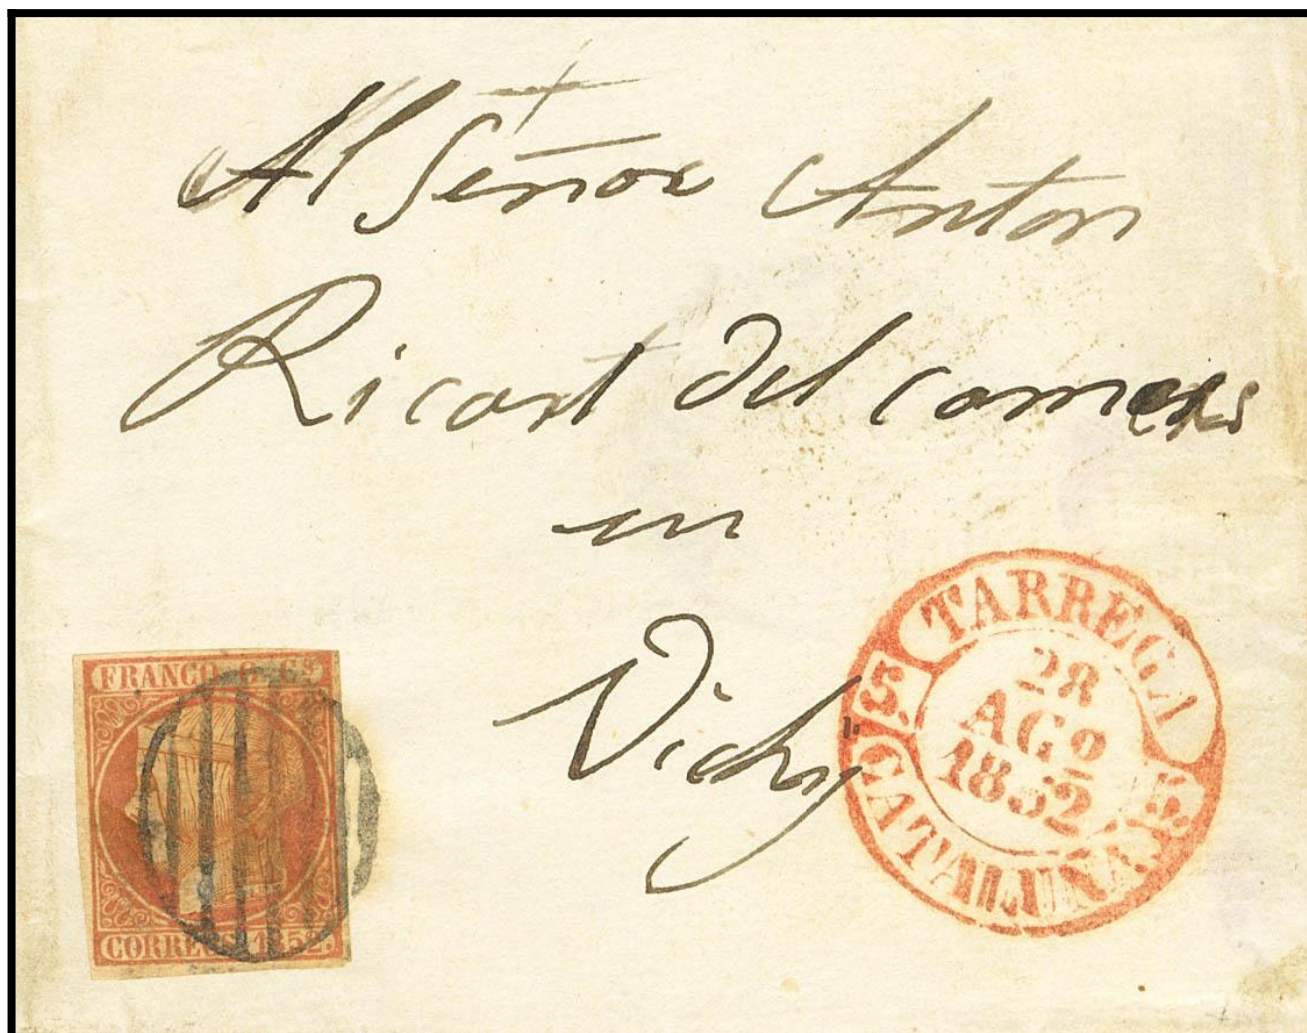 Al Señor Anton
Ricart del
en
Vichÿ
FRANCO. 6. Cs.
CORREOS 1852.
TARREGA
28
AGO
1852
CATALUÑA